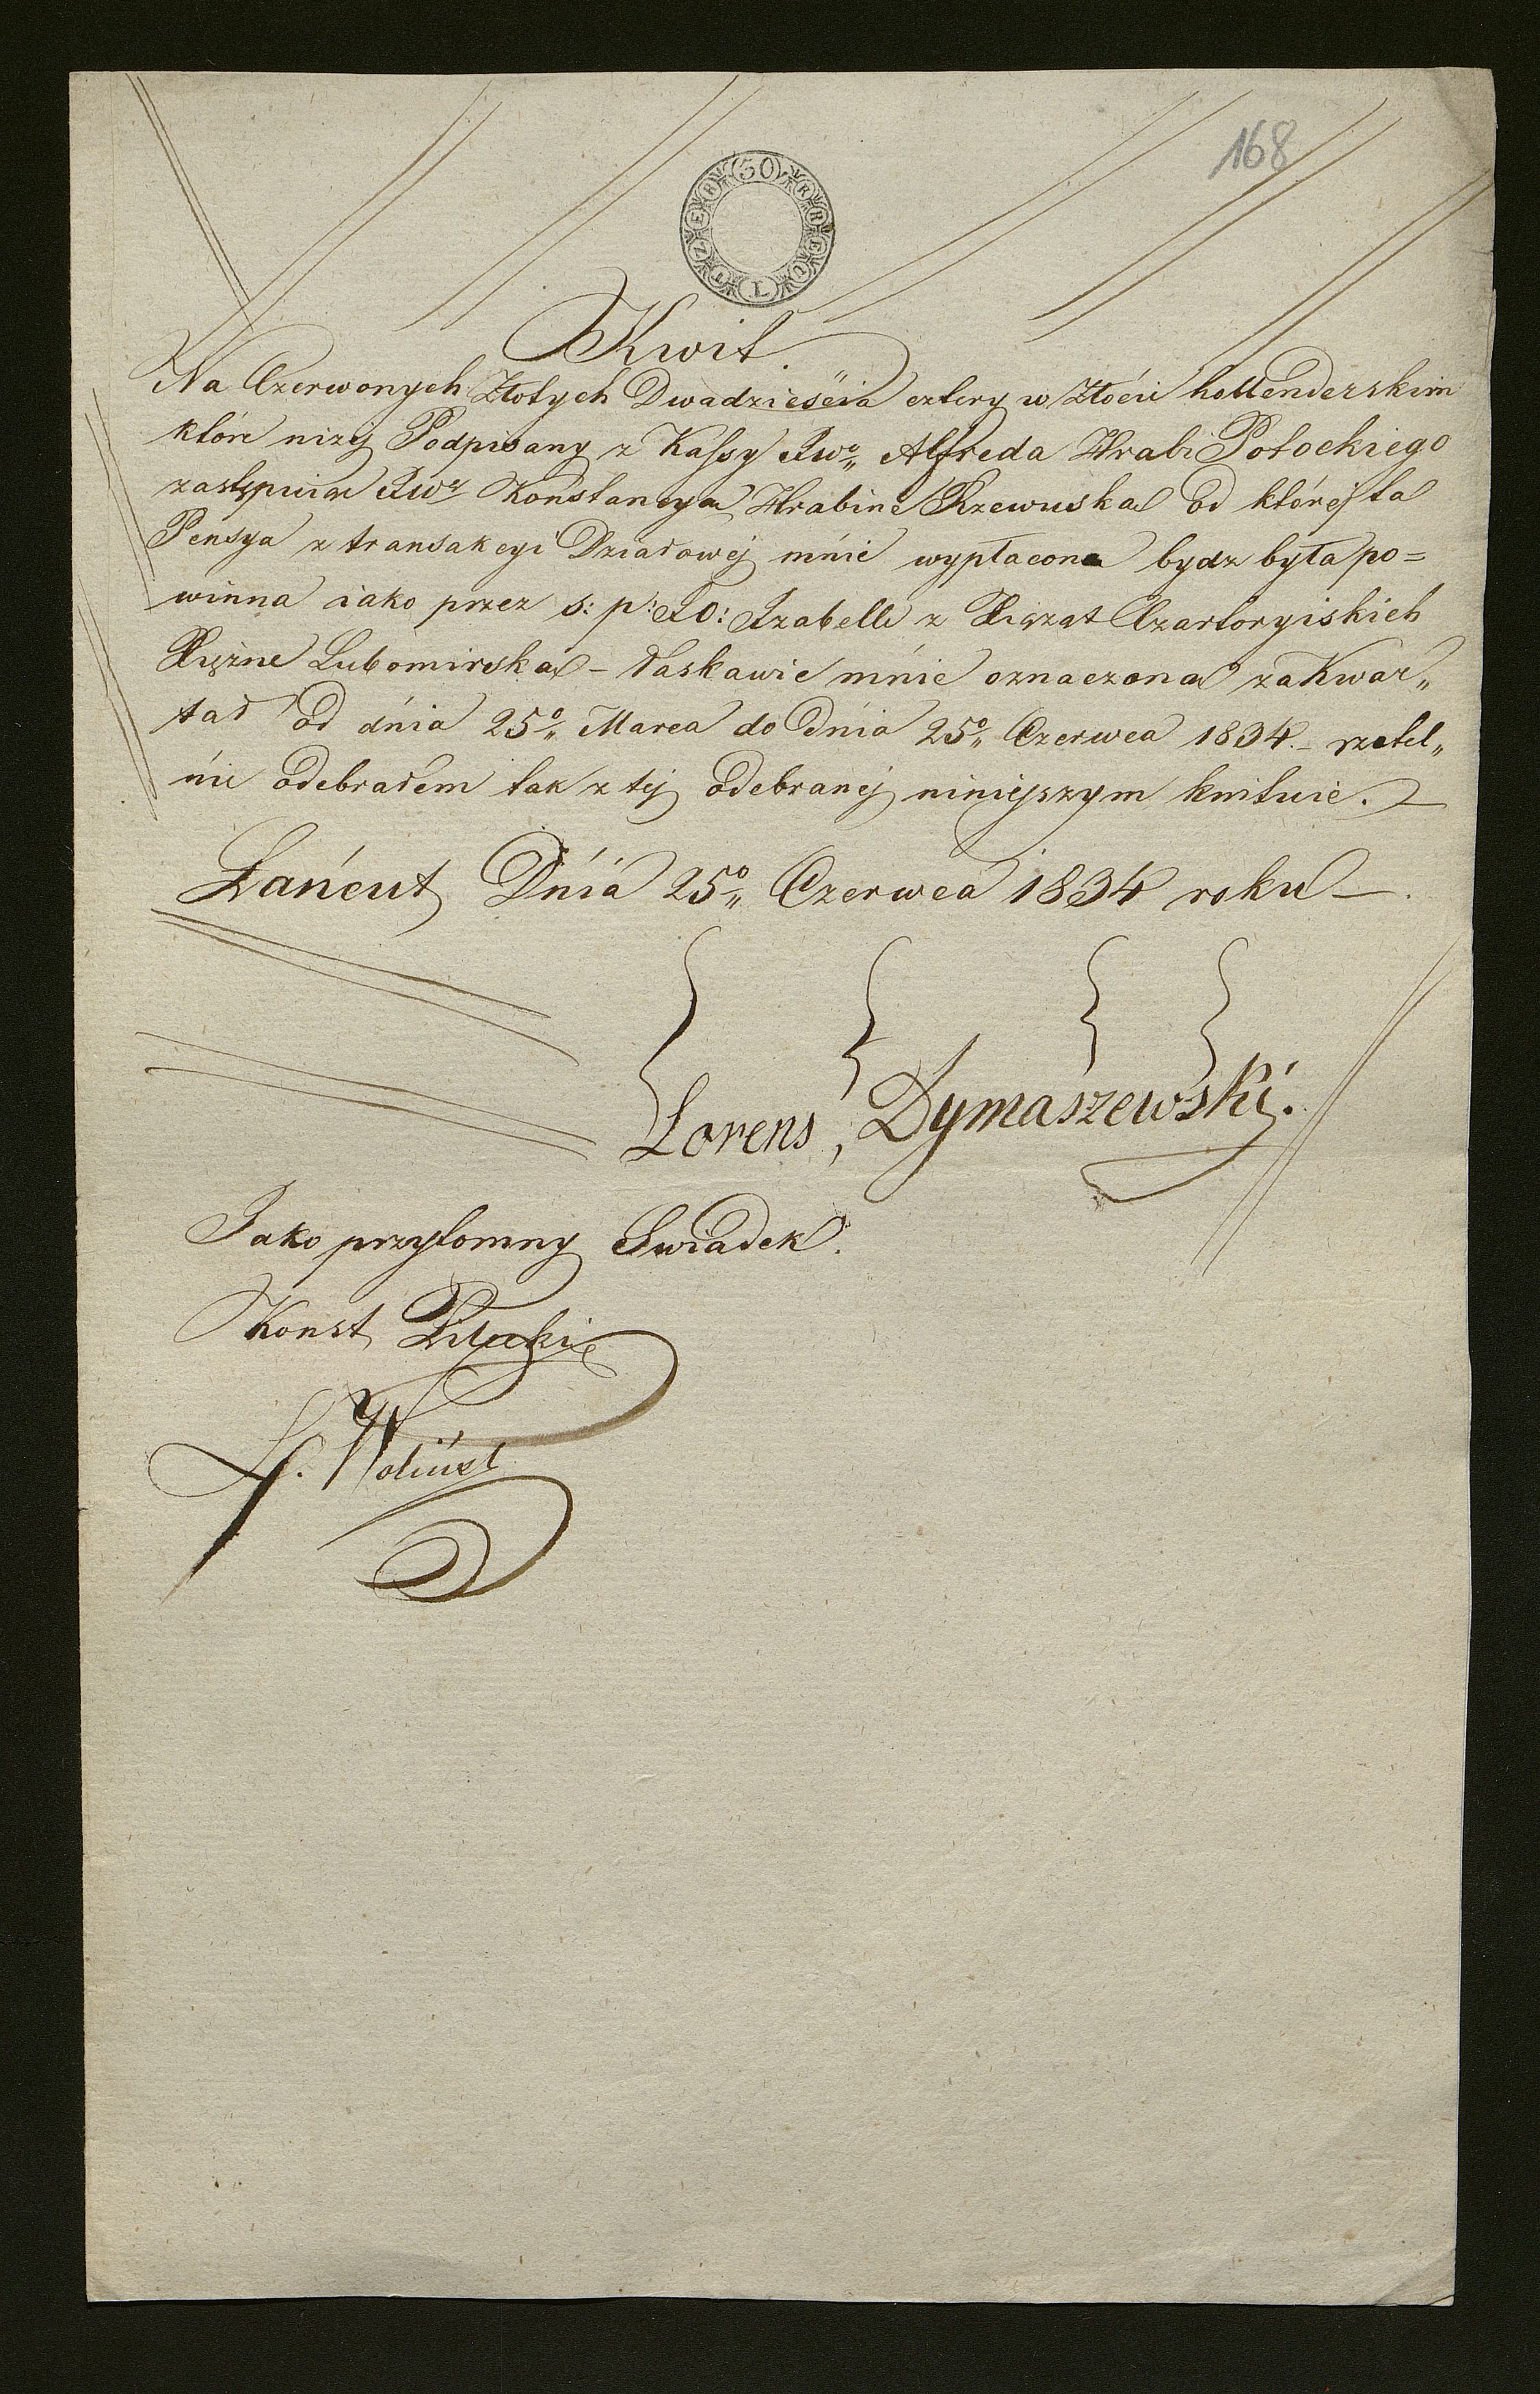 168
30 KREUTZER
Kwit
Na Czerwonych Złotych Dwadzieścia cztery w Złocie hollenderskim
które niżej Podpisany z Kassy JWo Alfreda Hrabi Potockiego
zastępuiąc JWą Konstancyą Hrabinę Rzewuską od którey ta
Pensya z transakcyi Działowéj mnie wypłacona bydz była po=
winna iako przez s: p: JO: Izabellę z Xiążąt Czartoryiskich
Xiężnę Lubomirską – łaskawie mnie oznaczona za Kwar„
tał od dnia 25o„ Marca do Dnia 25o„ Czerwca 1834. – rzetel„
nie odebrałem tak z tej odebranéj niniejszym kwituie. –
Łańcut Dnia 25o„ Czerwca 1834 roku –.
Lorens, Dymaszewski.
Jako przytomny Swiadek.
Konst